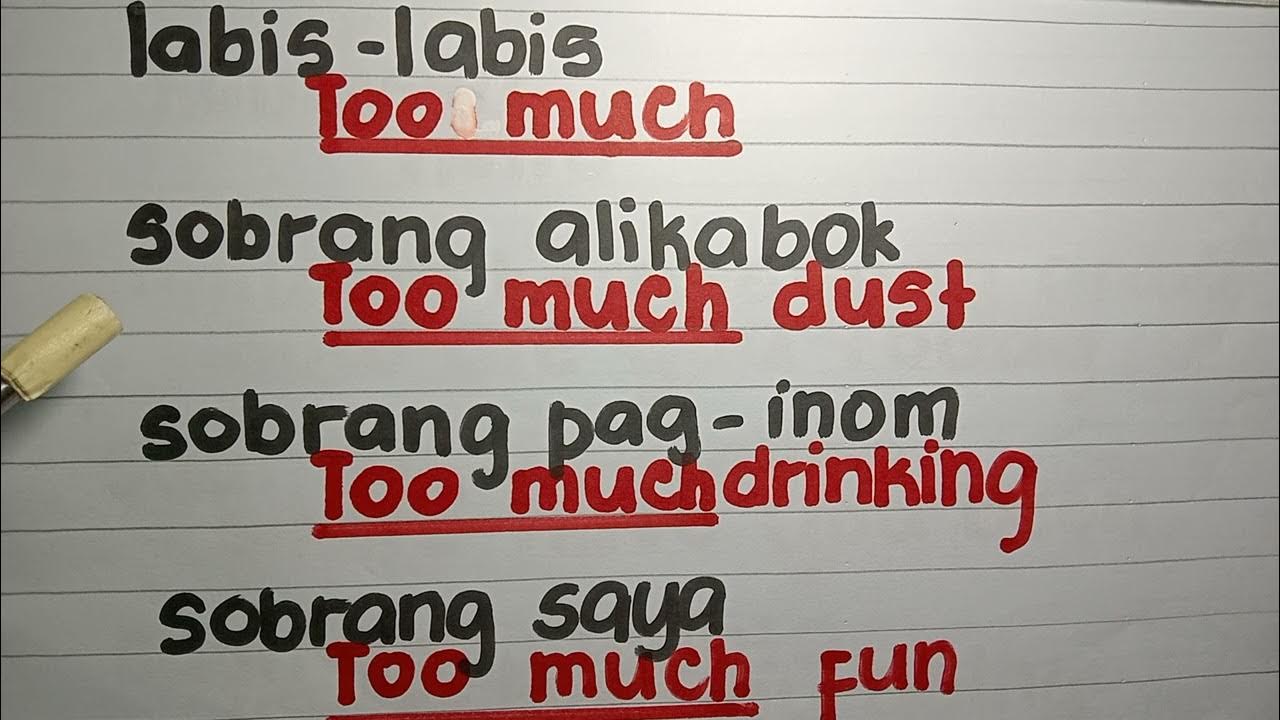 labis-labis
Too much
sobrang alikabok
Too much dust
sobrang pag-inom
Too much drinking
sobrang saya
Too much fun